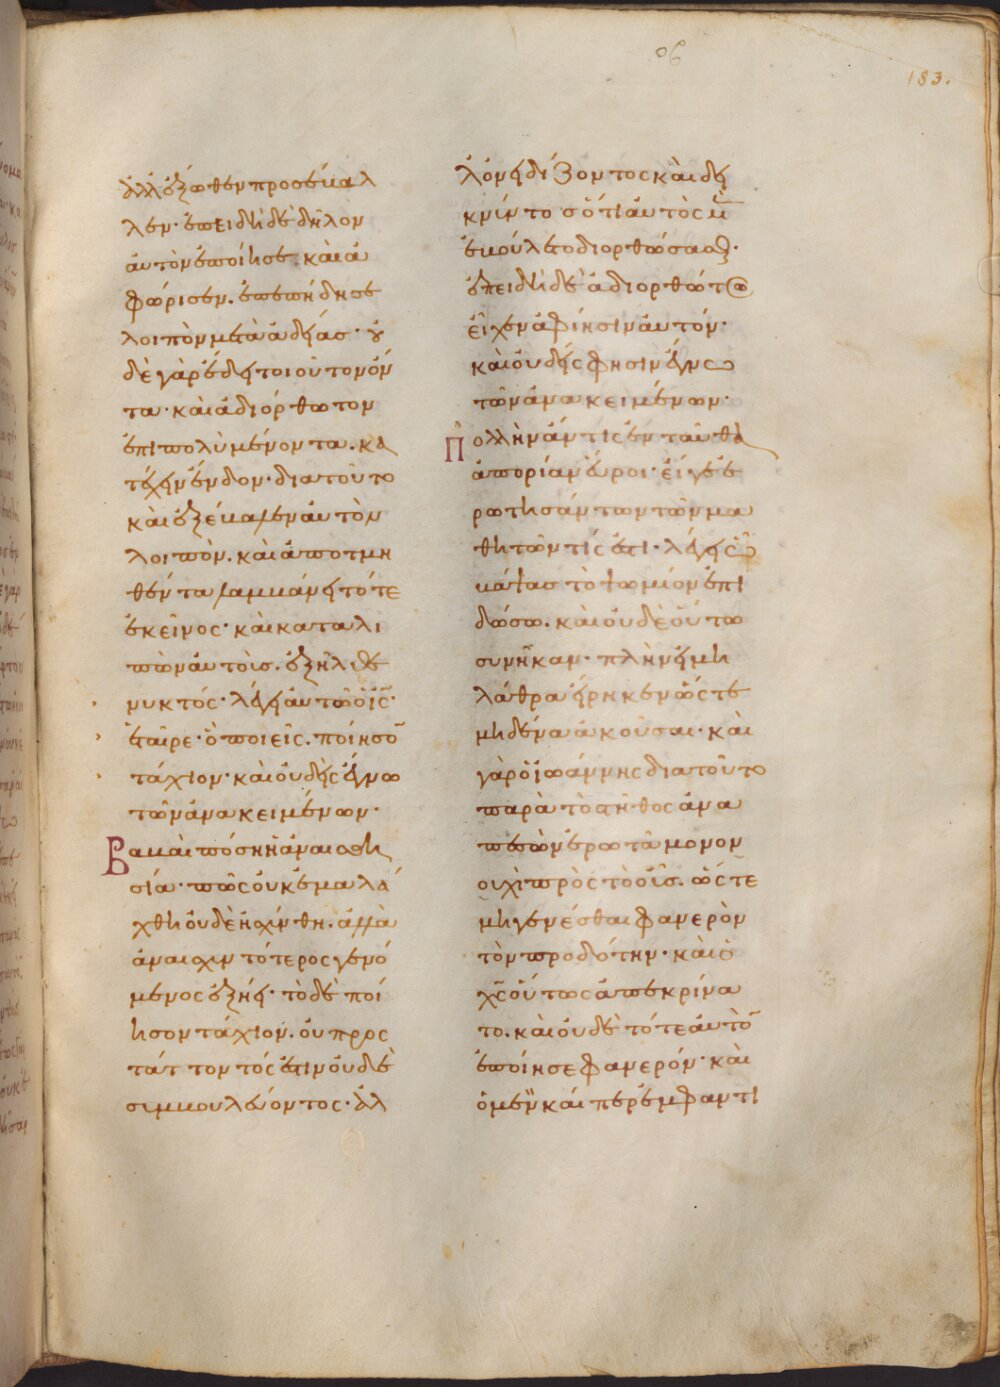 183.
ἀλλ' ἔξωθεν προσέβαλ
λεν· ἐπειδὴ δὲ δῆλον
αὐτὸν ἐποίησε. καὶ ἀ
φώρισεν. ἐπεπήδησε
λοιπὸν μετὰ ἀδείας· οὐ
δὲ γὰρ ἔδει τοιοῦτον ὄν
τα· καὶ ἀδιόρθωτον
ἐπιπολὺ μένοντα. κα
τέχειν ἔνδον· διατοῦτο
καὶ ἐξέβαλεν αὐτὸν
λοιπόν. καὶ ἀποτμη
θέντα λαμβάνει τότε
ἐκεῖνος· καὶ καταλι
πὼν αὐτοὺς. ἐξῆλθε
νυκτός· λέγει αὐτῶ ὁ ἰς̅·
ἑταῖρε· ὃ ποιεῖς. ποίησο̅
τάχιον· καὶ οὐδεὶς ἔγνω
τῶν ἀνακειμένων·
Βαβαὶ πόση ἡ ἀναισθη
σία· πῶς οὐκ ἐμαλά
χθη οὐδὲ ἠσχύνθη. ἀλλὰ
ἀναισχυντότερος γενό
μενος ἐξήει· τὸ δὲ ποί
ησον τάχιον. οὐ προς
τάττοντός ἐστιν οὐδὲ
συμβουλεύοντος· ἀλ
λ' ὀνειδίζοντος καὶ δει
κνύντος ὅτι αὐτὸς μ̅
ἐβούλετο διορθώσασθαι·
ἐπειδὴ δὲ ἀδιορθώτως
εἶχεν ἀφίησιν αὐτόν·
καὶ οὐδείς φησιν ἔγνω
τῶν ἀνακειμένων·
Πολλὴν ἄν τις ἐνταῦθα
ἀπορίαν εὕροι· εἴγε ἐ
ρωτησάντων τῶν μα
θητῶν τίς ἐστι· λέγει ὧ
βάψας τὸ ψωμίον ἐπι
δώσω. καὶ οὐδὲ οὕτω
συνῆκαν· πλὴν εἰ μὴ
λάθρα εἴρηκεν ὥστε
μηδένα ἀκοῦσαι· καὶ
γὰρ ὁ ἰωάννης διατοῦτο
παρὰ τὸ στῆθος ἀνα
πεσὼν ἐρωτᾶ μονον
ουχὶ πρὸς τὸ οὖς. ὥστε
μὴ γενέσθαι φανερὸν
τὸν προδότην· καὶ ὁ
χς̅ οὕτως ἀπεκρίνα
το. καὶ οὐδὲ τότε αὐτο̅
ἐποίησε φανερόν· καὶ
ὁ μὲν καίπερ ἐμφαντι